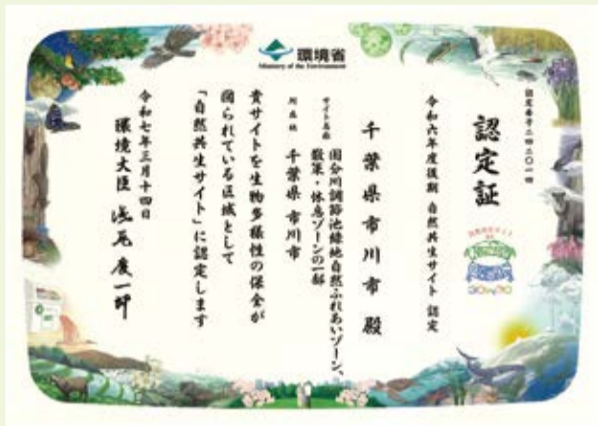 環境省
Ministry of the Environment
認定番号二四二〇一四
認定証
令和六年度後期 自然共生サイト 認定
千葉県市川市 殿
サイト名称 国分川調節池緑地自然ふれあいゾーン、
散策・休息ゾーンの一部
所在地 千葉県 市川市
貴サイトを生物多様性の保全が
図られている区域として
「自然共生サイト」に認定します
令和七年三月十四日
環境大臣 浅尾慶一郎